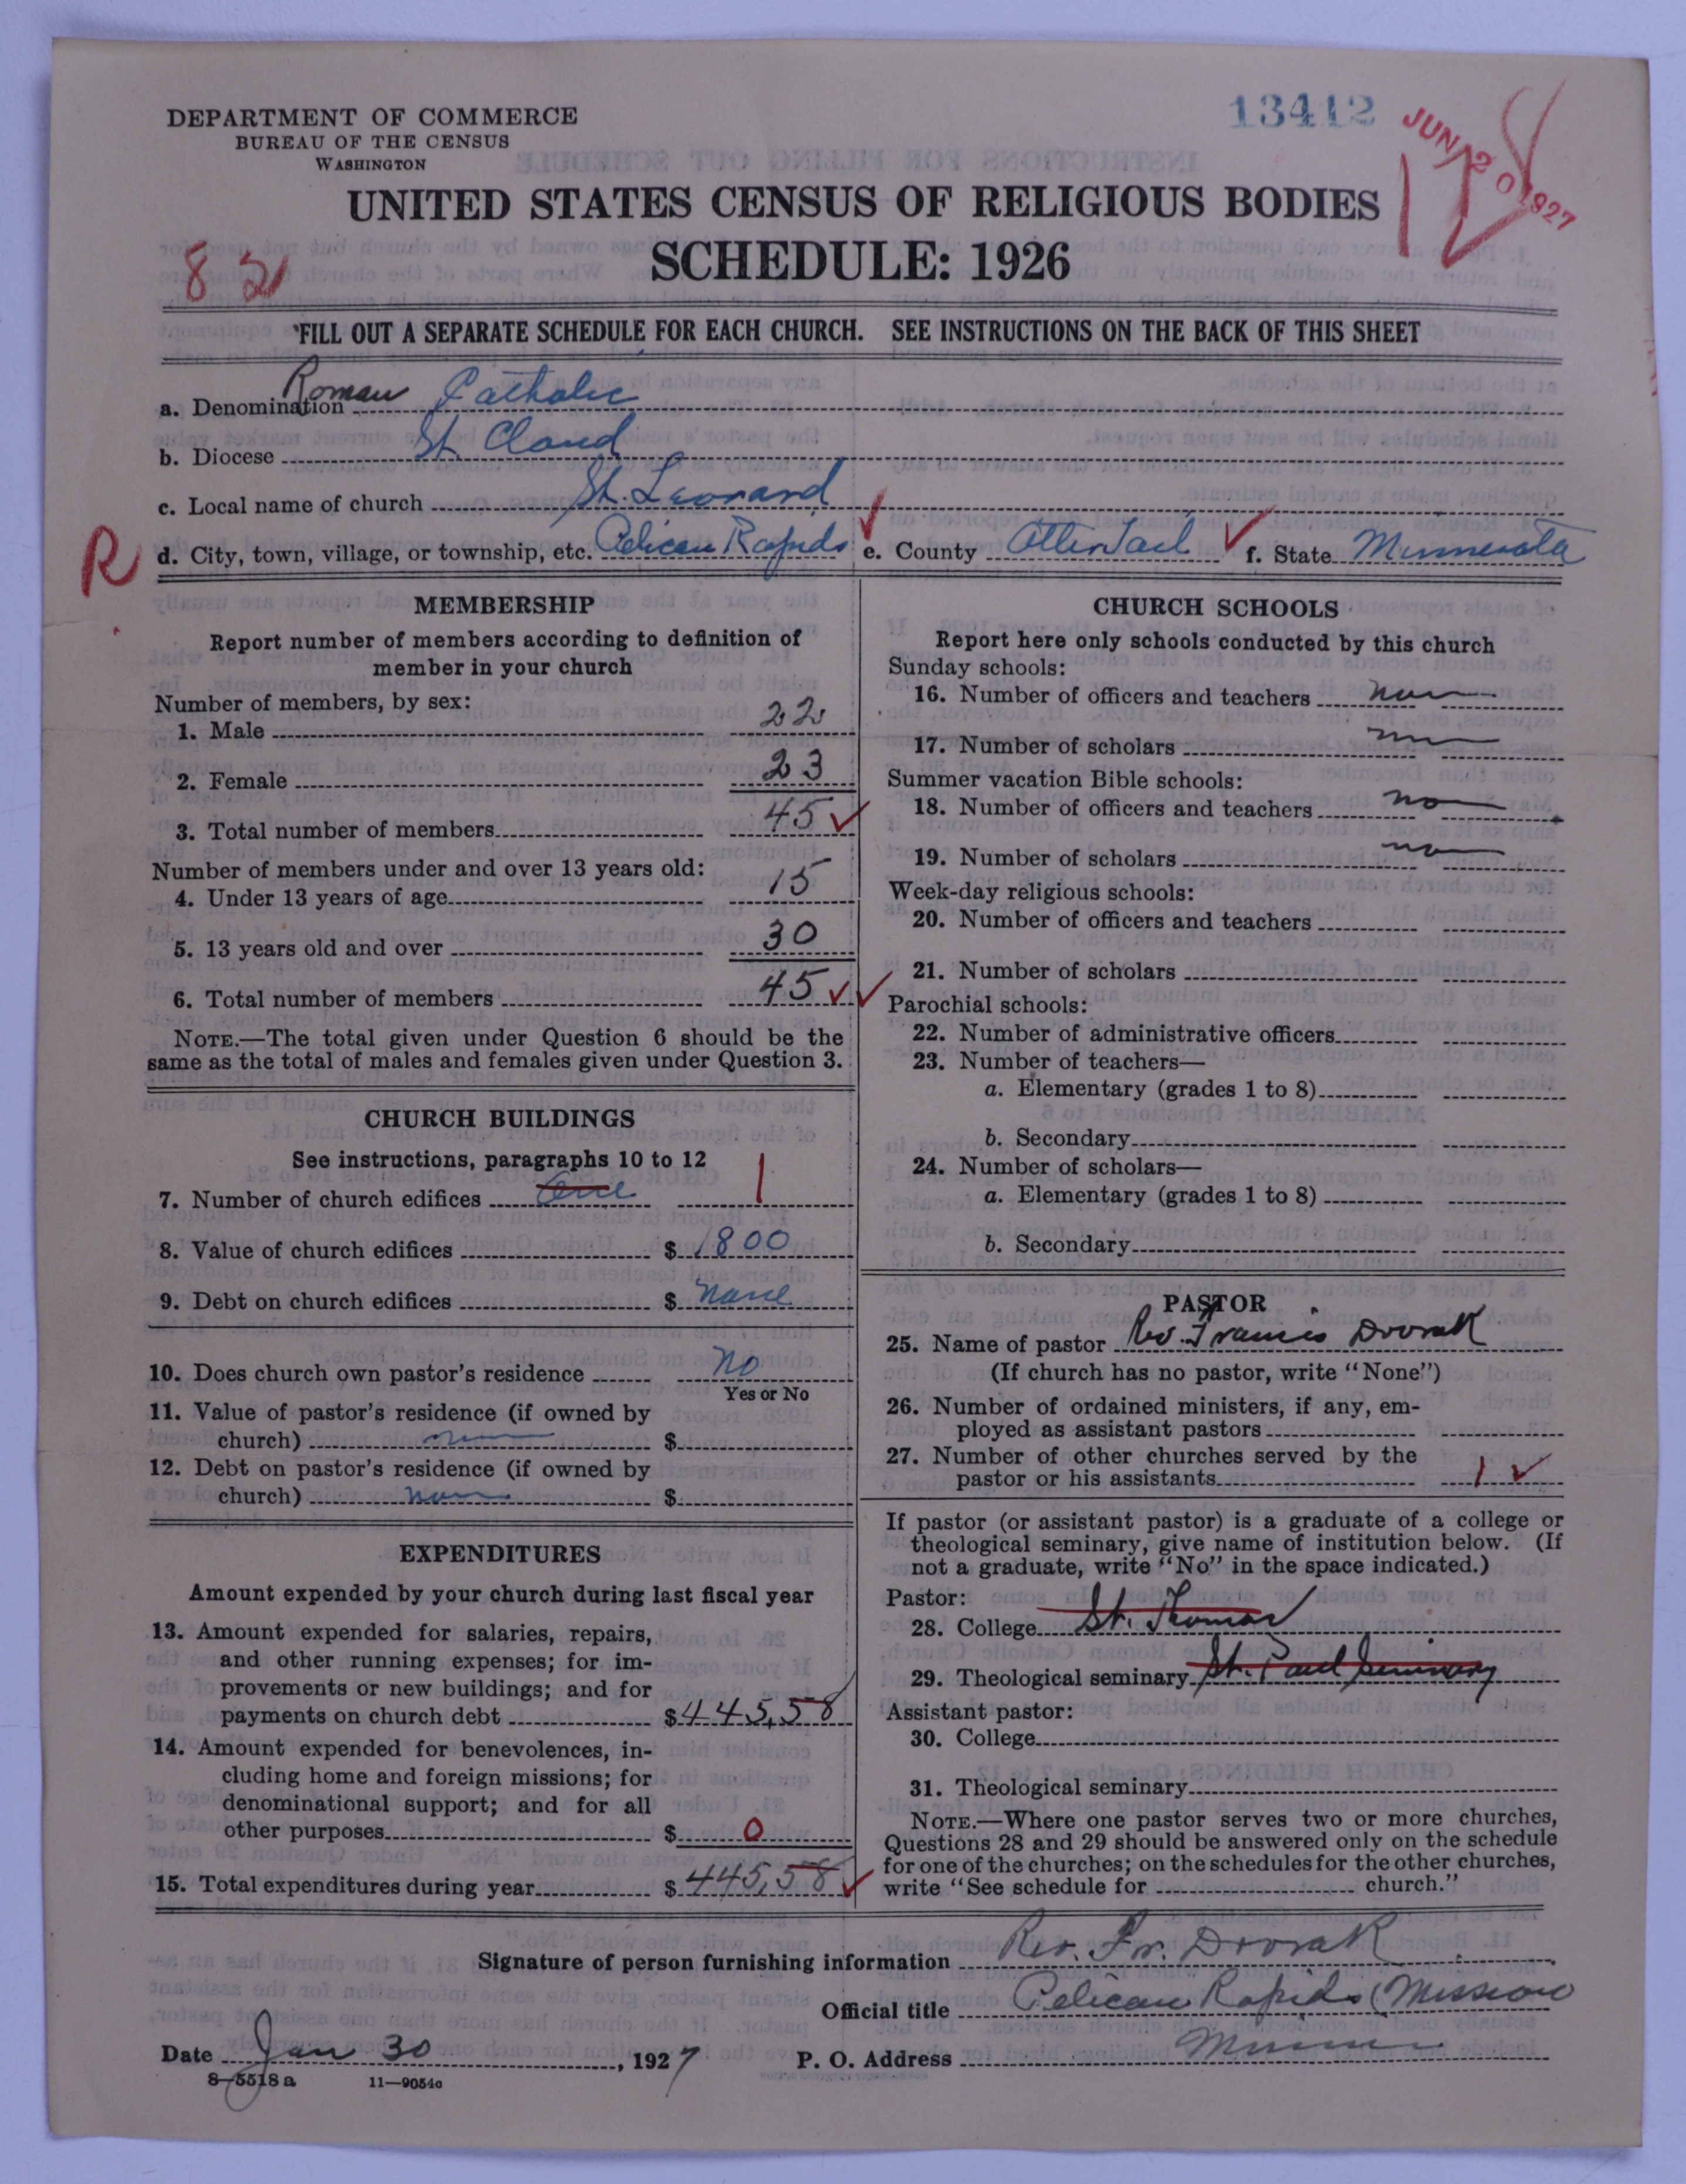 DEPARTMENT OF COMMERCE
BUREAU OF THE CENSUS
WASHINGTON
13412
JUN 20 1927
128
UNITED STATES CENSUS OF RELIGIOUS BODIES
SCHEDULE: 1926
82
FILL OUT A SEPARATE SCHEDULE FOR EACH CHURCH. SEE INSTRUCTIONS ON THE BACK OF THIS SHEET
a. Denomination Roman Catholic
b. Diocese St. Cloud
c. Local name of church St. Leonard
R d. City, town, village, or township, etc. Pelican Rapids e. County Otter Tail f. State Minnesota
MEMBERSHIP
Report number of members according to definition of
member in your church
Number of members, by sex:
1. Male 22
2. Female 23
3. Total number of members 45
Number of members under and over 13 years old:
4. Under 13 years of age 15
5. 13 years old and over 30
6. Total number of members 45
NOTE.—The total given under Question 6 should be the
same as the total of males and females given under Question 3.
CHURCH BUILDINGS
See instructions, paragraphs 10 to 12
7. Number of church edifices One 1
8. Value of church edifices $ 1800
9. Debt on church edifices $ none
10. Does church own pastor's residence No
Yes or No
11. Value of pastor's residence (if owned by
church) $
12. Debt on pastor's residence (if owned by
church) none $
EXPENDITURES
Amount expended by your church during last fiscal year
13. Amount expended for salaries, repairs,
and other running expenses; for im-
provements or new buildings; and for
payments on church debt $ 445,58
14. Amount expended for benevolences, in-
cluding home and foreign missions; for
denominational support; and for all
other purposes $ 0
15. Total expenditures during year $ 445,58
CHURCH SCHOOLS
Report here only schools conducted by this church
Sunday schools:
16. Number of officers and teachers none
17. Number of scholars
Summer vacation Bible schools:
18. Number of officers and teachers no
19. Number of scholars no
Week-day religious schools:
20. Number of officers and teachers
21. Number of scholars
Parochial schools:
22. Number of administrative officers
23. Number of teachers—
a. Elementary (grades 1 to 8)
b. Secondary
24. Number of scholars—
a. Elementary (grades 1 to 8)
b. Secondary
PASTOR
25. Name of pastor Rev. Francis Dvorak
(If church has no pastor, write "None")
26. Number of ordained ministers, if any, em-
ployed as assistant pastors
27. Number of other churches served by the
pastor or his assistants 1
If pastor (or assistant pastor) is a graduate of a college or
theological seminary, give name of institution below. (If
not a graduate, write "No" in the space indicated.)
Pastor:
28. College St. Thomas
29. Theological seminary St. Paul Seminary
Assistant pastor:
30. College
31. Theological seminary
NOTE.—Where one pastor serves two or more churches,
Questions 28 and 29 should be answered only on the schedule
for one of the churches; on the schedules for the other churches,
write "See schedule for church."
Signature of person furnishing information Rev. Fr. Dvorak
Official title Pelican Rapids (Mission
Date Jan 30, 1927 P. O. Address Minn
8—5518 a 11—9054c